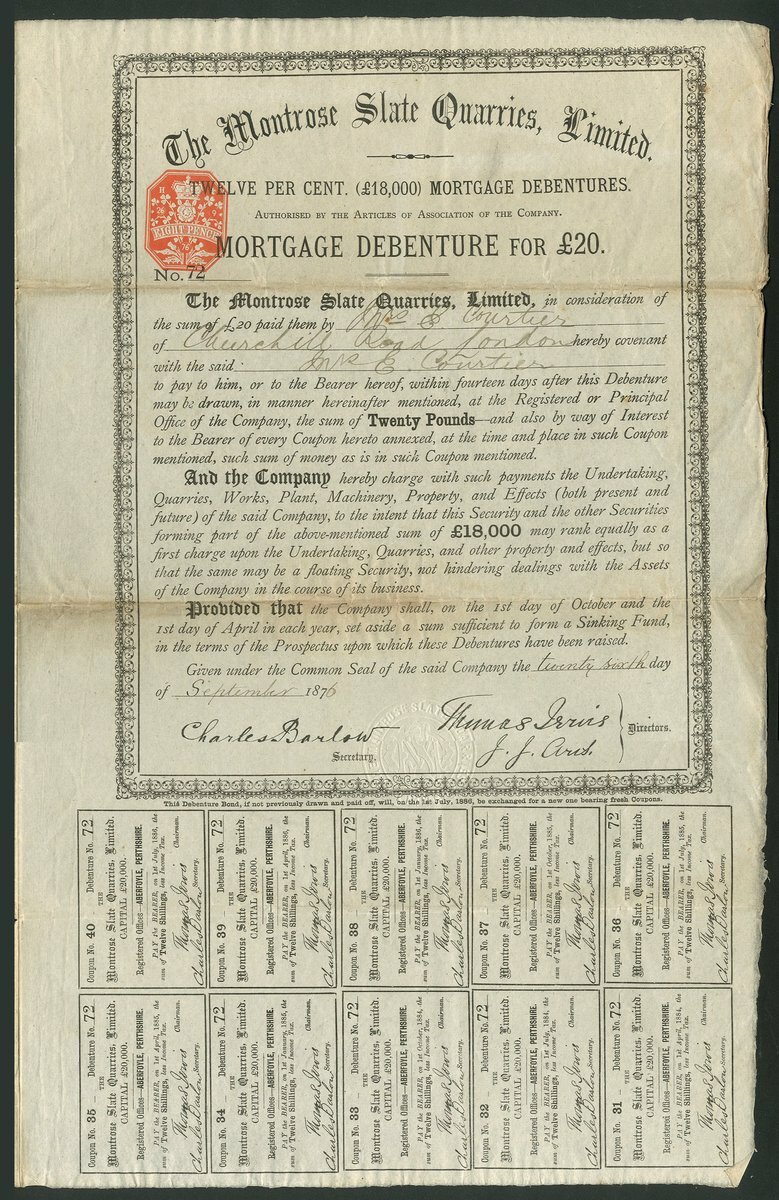 The Montrose Slate Quarries, Limited.
TWELVE PER CENT. (£18,000) MORTGAGE DEBENTURES.
AUTHORISED BY THE ARTICLES OF ASSOCIATION OF THE COMPANY.
H
26 9
EIGHT PENCE
76
MORTGAGE DEBENTURE FOR £20.
No. 72
The Montrose Slate Quarries, Limited, in consideration of
the sum of £20 paid them by Mrs E Courtier
of Churchill Road London hereby covenant
with the said Mrs E. Courtier
to pay to him, or to the Bearer hereof, within fourteen days after this Debenture
may be drawn, in manner hereinafter mentioned, at the Registered or Principal
Office of the Company, the sum of Twenty Pounds—and also by way of Interest
to the Bearer of every Coupon hereto annexed, at the time and place in such Coupon
mentioned, such sum of money as is in such Coupon mentioned.
And the Company hereby charge with such payments the Undertaking,
Quarries, Works, Plant, Machinery, Property, and Effects (both present and
future) of the said Company, to the intent that this Security and the other Securities
forming part of the above-mentioned sum of £18,000 may rank equally as a
first charge upon the Undertaking, Quarries, and other property and effects, but so
that the same may be a floating Security, not hindering dealings with the Assets
of the Company in the course of its business.
Provided that the Company shall, on the 1st day of October and the
1st day of April in each year, set aside a sum sufficient to form a Sinking Fund,
in the terms of the Prospectus upon which these Debentures have been raised.
Given under the Common Seal of the said Company the twenty sixth day
of September 1876
Charles Barlow
Secretary.
Thomas Jervis
J. J.
Directors.
This Debenture Bond, if not previously drawn and paid off, will, on the 1st July, 1886, be exchanged for a new one bearing fresh Coupons.
Coupon No. 40 Debenture No. 72
THE
Montrose Slate Quarries, Limited.
CAPITAL £20,000.
Registered Offices—ABERFOYLE, PERTHSHIRE.
PAY the BEARER, on 1st July, 1886, the
sum of Twelve Shillings, less Income Tax.
Thomas Jervis Chairman.
Charles Barlow Secretary.
Coupon No. 39 Debenture No. 72
THE
Montrose Slate Quarries, Limited.
CAPITAL £20,000.
Registered Offices—ABERFOYLE, PERTHSHIRE.
PAY the BEARER, on 1st April, 1886, the
sum of Twelve Shillings, less Income Tax.
Thomas Jervis Chairman.
Charles Barlow Secretary.
Coupon No. 38 Debenture No. 72
THE
Montrose Slate Quarries, Limited.
CAPITAL £20,000.
Registered Offices—ABERFOYLE, PERTHSHIRE.
PAY the BEARER, on 1st January, 1886, the
sum of Twelve Shillings, less Income Tax.
Thomas Jervis Chairman.
Charles Barlow Secretary.
Coupon No. 37 Debenture No. 72
THE
Montrose Slate Quarries, Limited.
CAPITAL £20,000.
Registered Offices—ABERFOYLE, PERTHSHIRE.
PAY the BEARER, on 1st October, 1885, the
sum of Twelve Shillings, less Income Tax.
Thomas Jervis Chairman.
Charles Barlow Secretary.
Coupon No. 36 Debenture No. 72
THE
Montrose Slate Quarries, Limited.
CAPITAL £20,000.
Registered Offices—ABERFOYLE, PERTHSHIRE.
PAY the BEARER, on 1st July, 1885, the
sum of Twelve Shillings, less Income Tax.
Thomas Jervis Chairman.
Charles Barlow Secretary.
Coupon No. 35 Debenture No. 72
THE
Montrose Slate Quarries, Limited.
CAPITAL £20,000.
Registered Offices—ABERFOYLE, PERTHSHIRE.
PAY the BEARER, on 1st April, 1885, the
sum of Twelve Shillings, less Income Tax.
Thomas Jervis Chairman.
Charles Barlow Secretary.
Coupon No. 34 Debenture No. 72
THE
Montrose Slate Quarries, Limited.
CAPITAL £20,000.
Registered Offices—ABERFOYLE, PERTHSHIRE.
PAY the BEARER, on 1st January, 1885, the
sum of Twelve Shillings, less Income Tax.
Thomas Jervis Chairman.
Charles Barlow Secretary.
Coupon No. 33 Debenture No. 72
THE
Montrose Slate Quarries, Limited.
CAPITAL £20,000.
Registered Offices—ABERFOYLE, PERTHSHIRE.
PAY the BEARER, on 1st October, 1884, the
sum of Twelve Shillings, less Income Tax.
Thomas Jervis Chairman.
Charles Barlow Secretary.
Coupon No. 32 Debenture No. 72
THE
Montrose Slate Quarries, Limited.
CAPITAL £20,000.
Registered Offices—ABERFOYLE, PERTHSHIRE.
PAY the BEARER, on 1st July, 1884, the
sum of Twelve Shillings, less Income Tax.
Thomas Jervis Chairman.
Charles Barlow Secretary.
Coupon No. 31 Debenture No. 72
THE
Montrose Slate Quarries, Limited.
CAPITAL £20,000.
Registered Offices—ABERFOYLE, PERTHSHIRE.
PAY the BEARER, on 1st April, 1884, the
sum of Twelve Shillings, less Income Tax.
Thomas Jervis Chairman.
Charles Barlow Secretary.